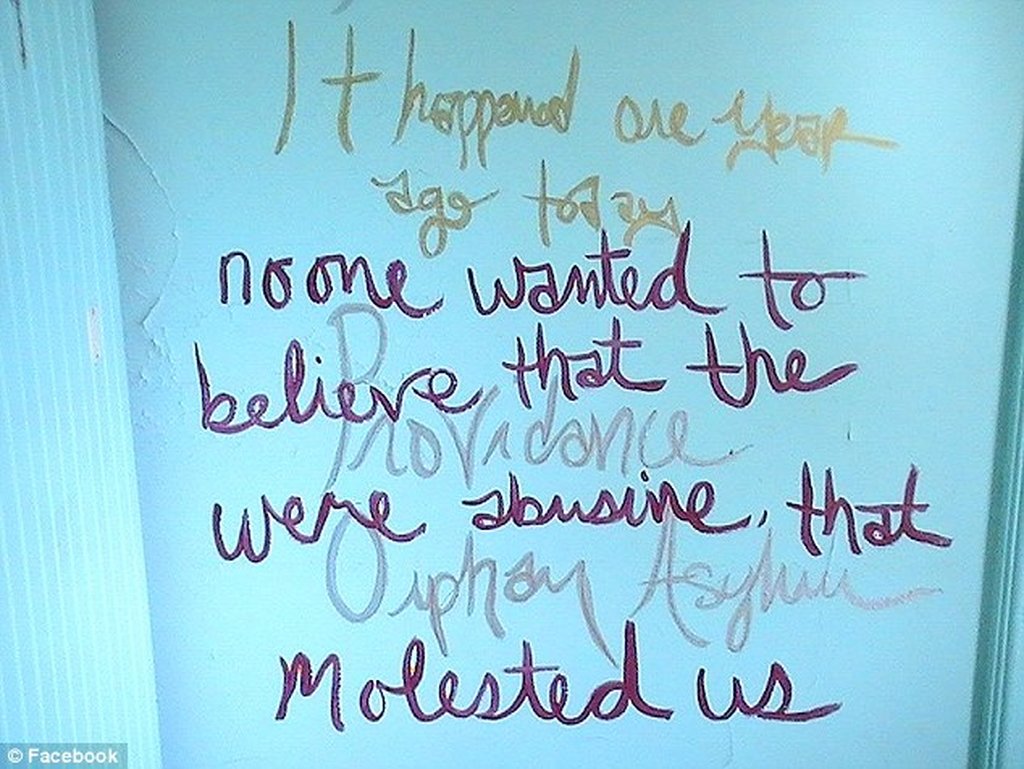 It happened one year
ago today
no one wanted to
believe that the
Providance
were abusine, that
Orphan Asylum
Molested us
© Facebook